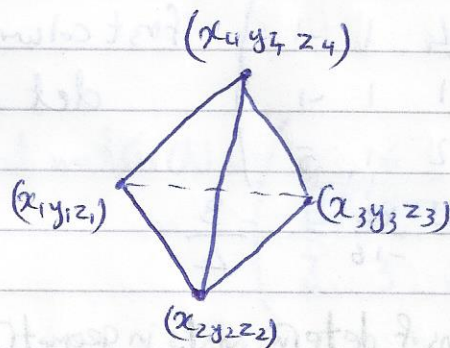 (x₄ y₄ z₄)
(x₁y₁z₁)
(x₃y₃z₃)
(x₂y₂z₂)